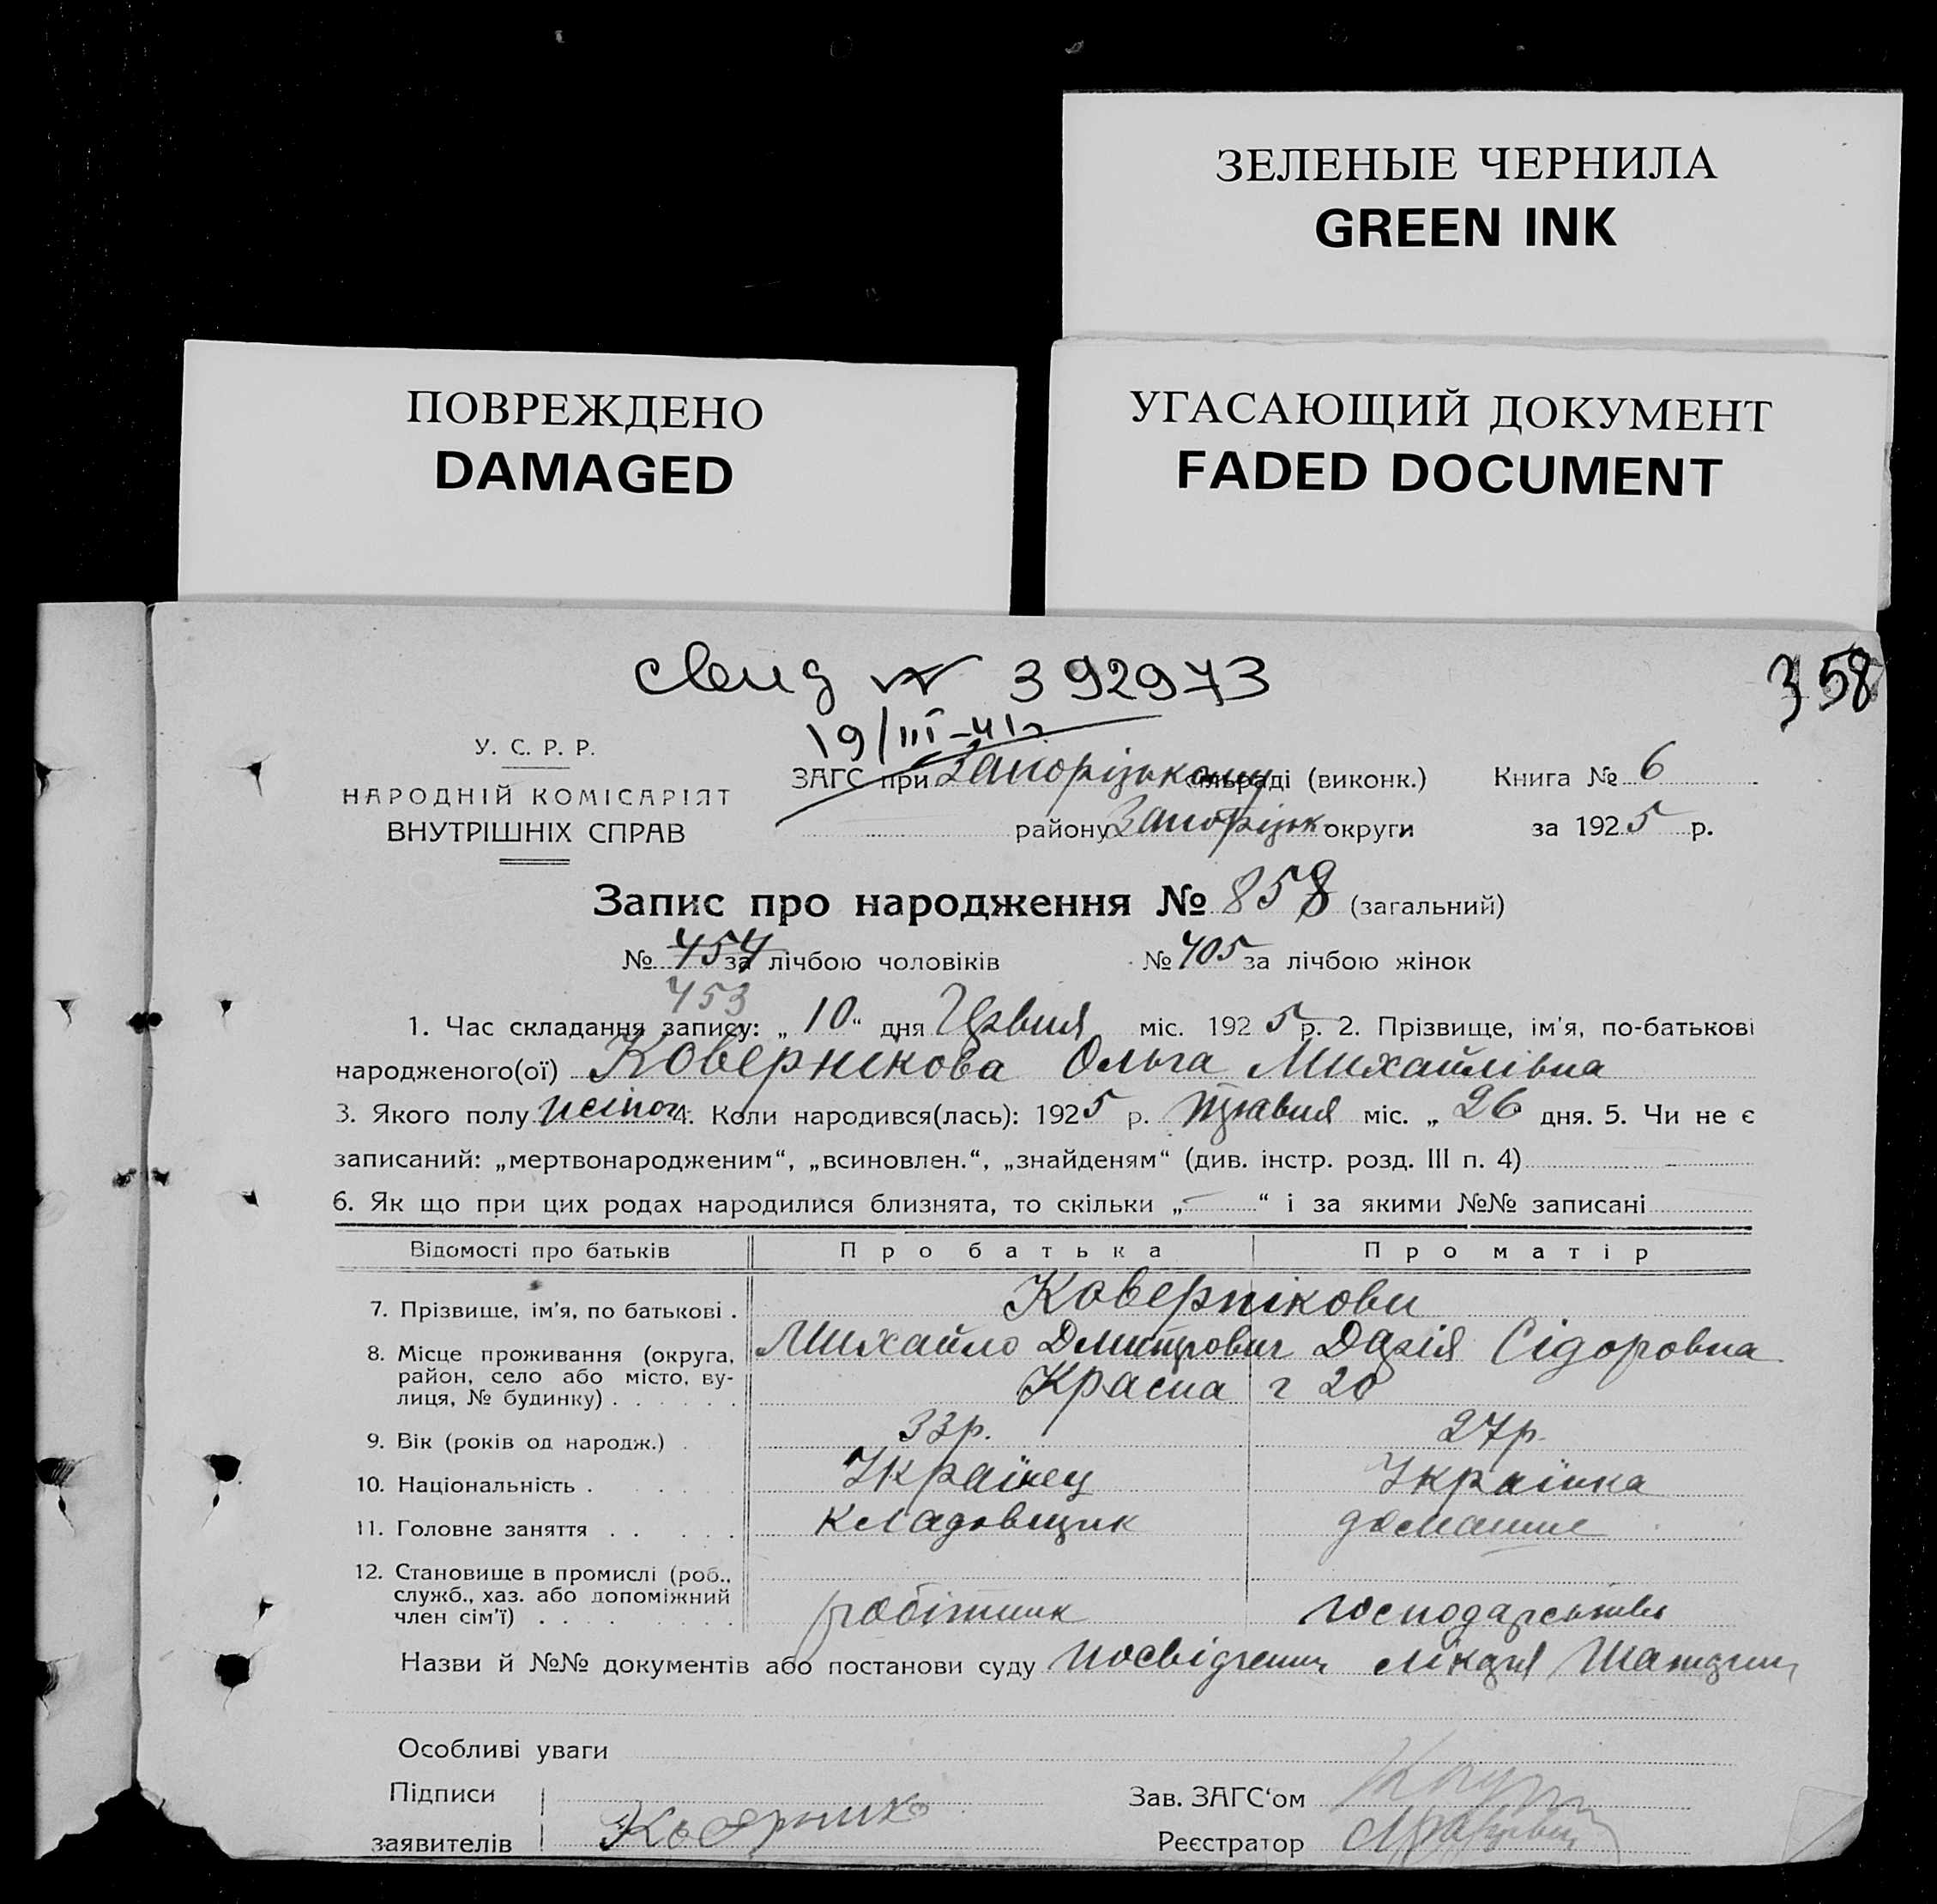 ЗЕЛЕНЫЕ ЧЕРНИЛА
GREEN INK
ПОВРЕЖДЕНО
DAMAGED
УГАСАЮЩИЙ ДОКУМЕНТ
FADED DOCUMENT
свид № 392973
358
19/III-41г.
У. С. Р. Р.
НАРОДНІЙ КОМІСАРІЯТ
ВНУТРІШНІХ СПРАВ
ЗАГС при Запорізькому сільраді (виконк.) Книга № 6
району Запорізьк округи за 1925 р.
Запис про народження № 858 (загальний)
№ 454 за лічбою чоловіків № 405 за лічбою жінок
453
1. Час складання запису: „10“ дня Червня міс. 1925 р. 2. Прізвище, ім'я, по-батькові
народженого(ої) Ковернікова Ольга Михайлівна
3. Якого полу жіноч. 4. Коли народився(лась): 1925 р. травня міс. „26 дня. 5. Чи не є
записаний: „мертвонародженим“, „всиновлен.“, „знайденям“ (див. інстр. розд. III п. 4)
6. Як що при цих родах народилися близнята, то скільки „—“ і за якими №№ записані
Відомості про батьків Про батька Про матір
7. Прізвище, ім'я, по батькові . Ковернікови
Михайло Дмитрович Дарія Сідоровна
8. Місце проживання (округа, район, село або місто, вулиця, № будинку) . . . . . . Красна г 20
9. Вік (років од народж.) . 33р. 27р.
10. Національність . . . . . Українец Українка
11. Головне заняття . . . . . кладовщик домашнє
12. Становище в промислі (роб., служб., хаз. або допоміжний член сім'ї) . . . . . . робітник господарство
Назви й №№ документів або постанови суду посвідчення лікаря
Особливі уваги
Підписи
заявителів
Зав. ЗАГС‘ом
Реєстратор